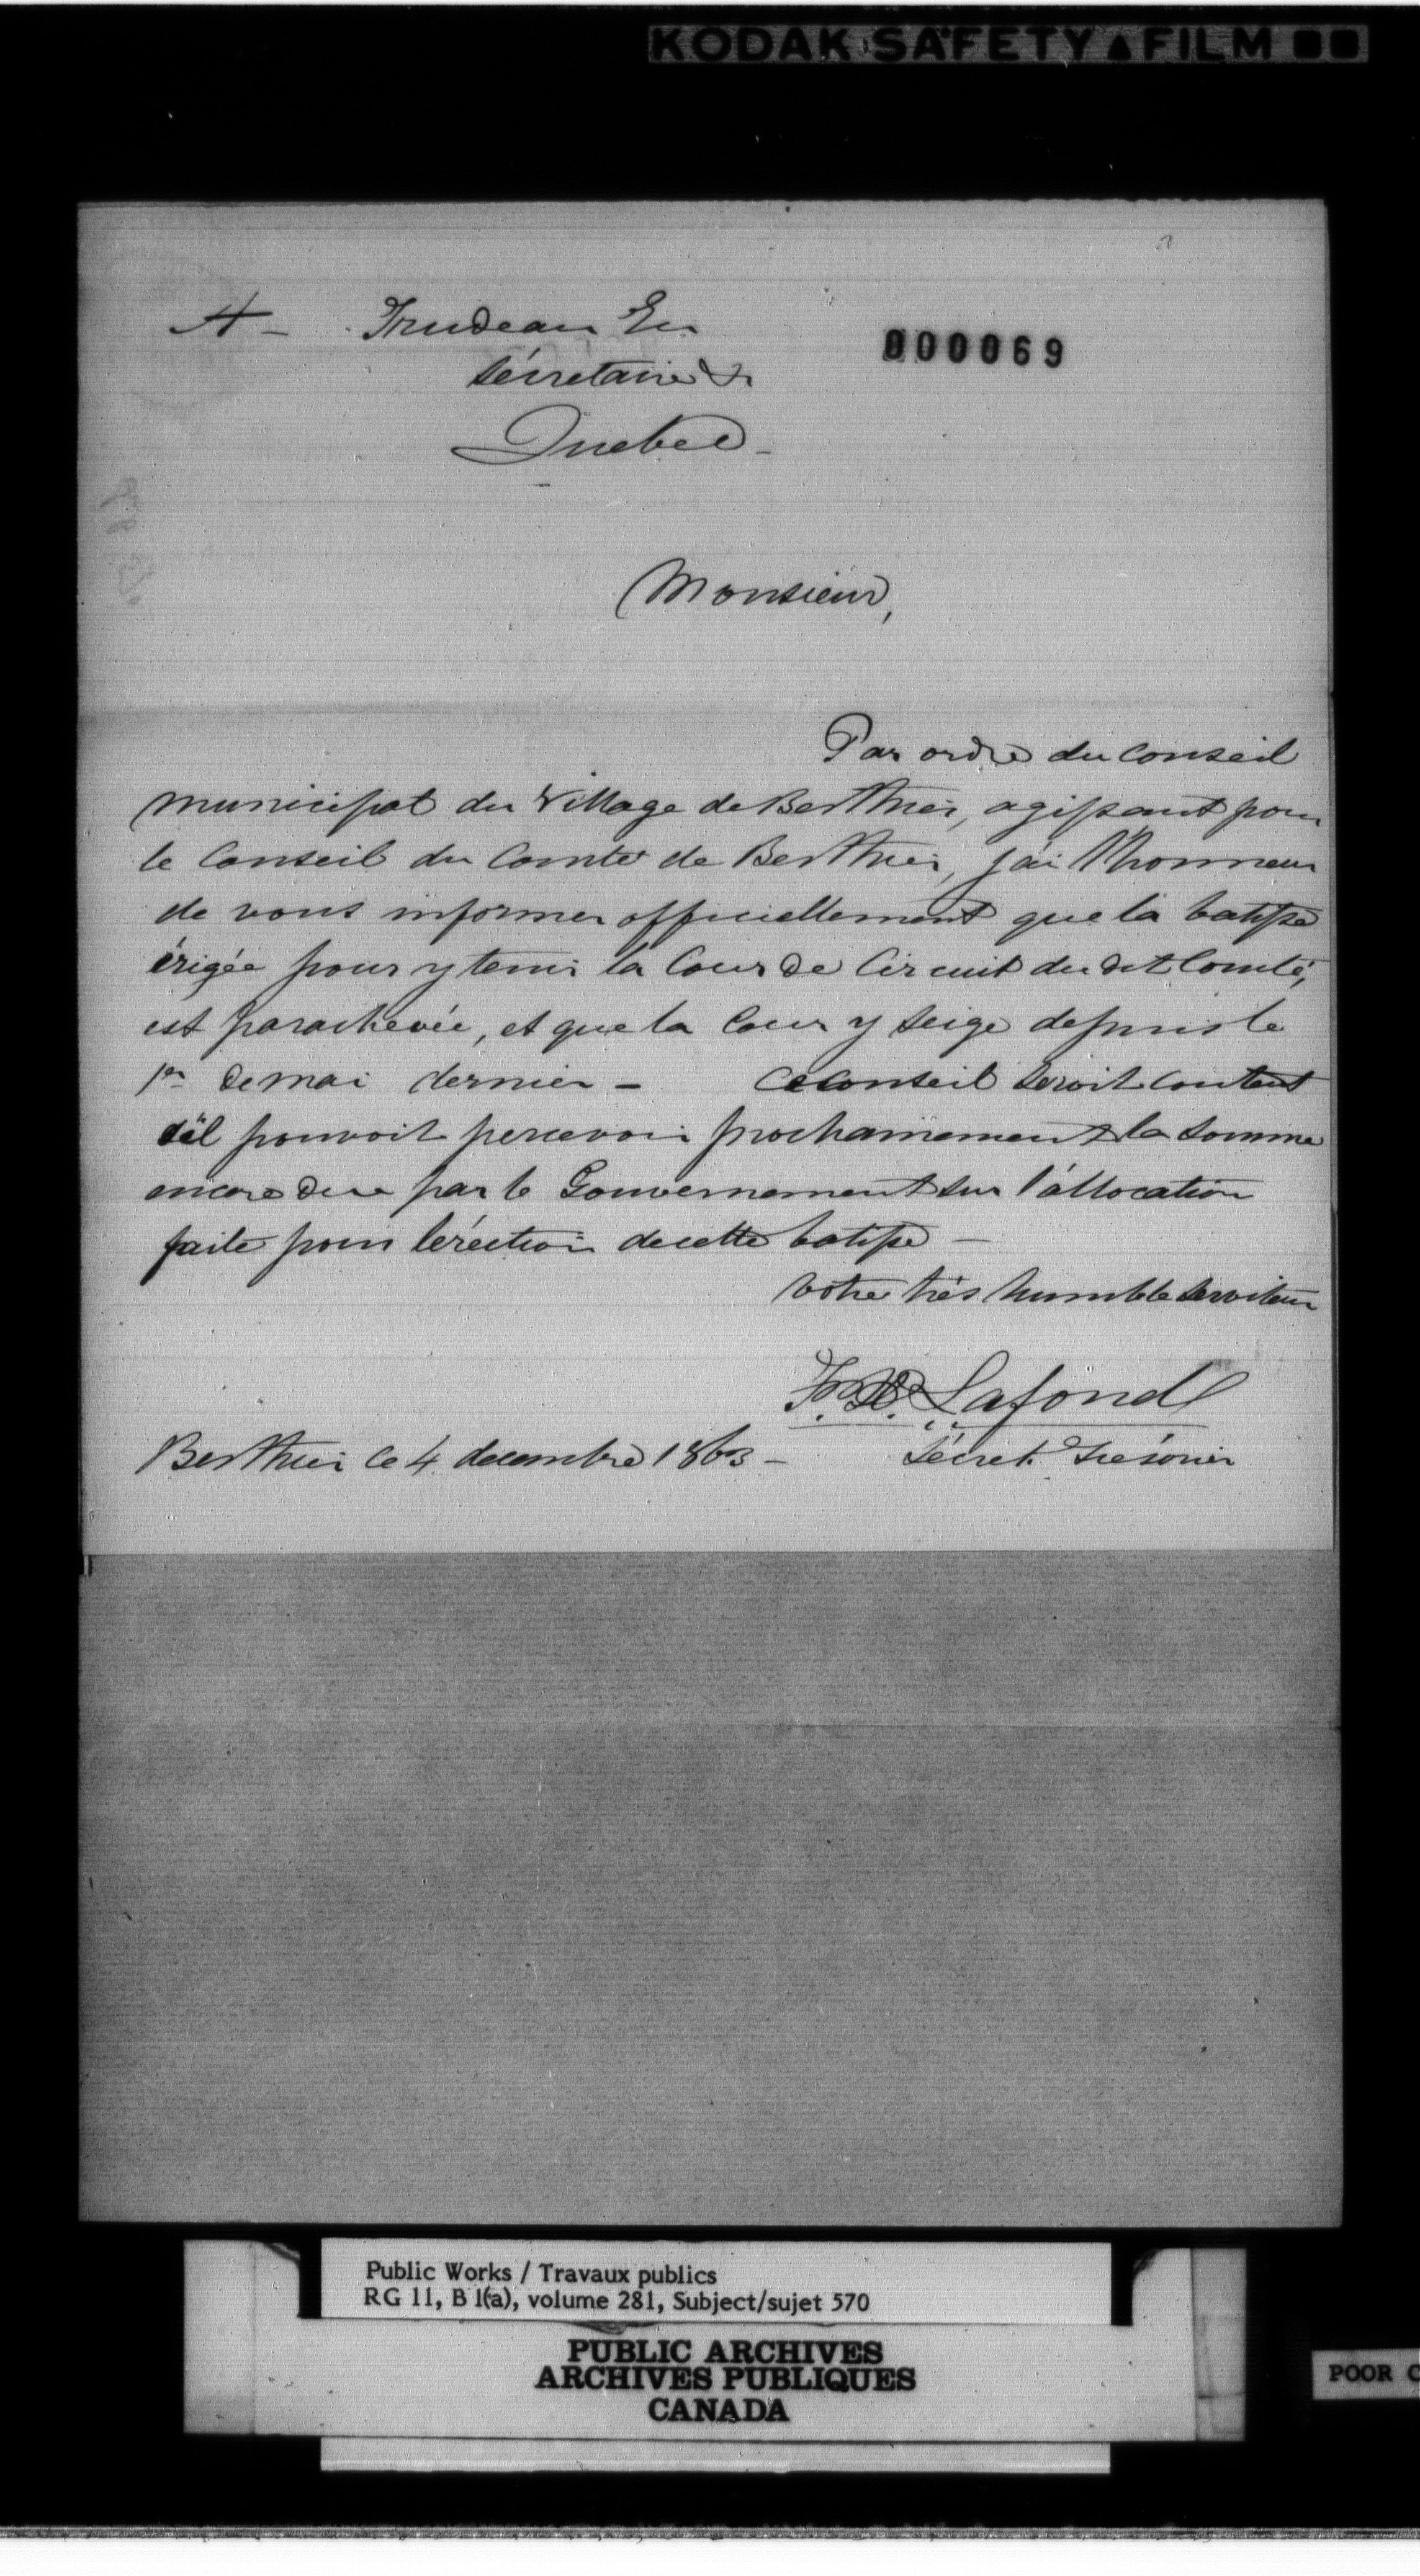 KODAK SAFETY FILM
A - Trudeau Er
Sécretaire &
Quebec -
000069
Monsieur,
Par ordre du Conseil
municipal du Village de Berthier, agissant pour
le Conseil du Comté de Berthier, j'ai l'honneur
de vous informer officiellement que la batisse
érigée pour y tenir la Cour de Circuit du dit Comté,
est parachevée, et que la Cour y seige depuis le
1er de mai dernier - Ce Conseil seroit content
s'il pouvoit percevoir prochainement la somme
encore due par le Gouvernement sur l'allocation
faite pour l'érection de cette batisse -
Votre très humble serviteur
Lafond
Berthier ce 4 decembre 1863 - Sécret. Trésorier
Public Works / Travaux publics
RG 11, B 1(a), volume 281, Subject/sujet 570
PUBLIC ARCHIVES
ARCHIVES PUBLIQUES
CANADA
POOR C